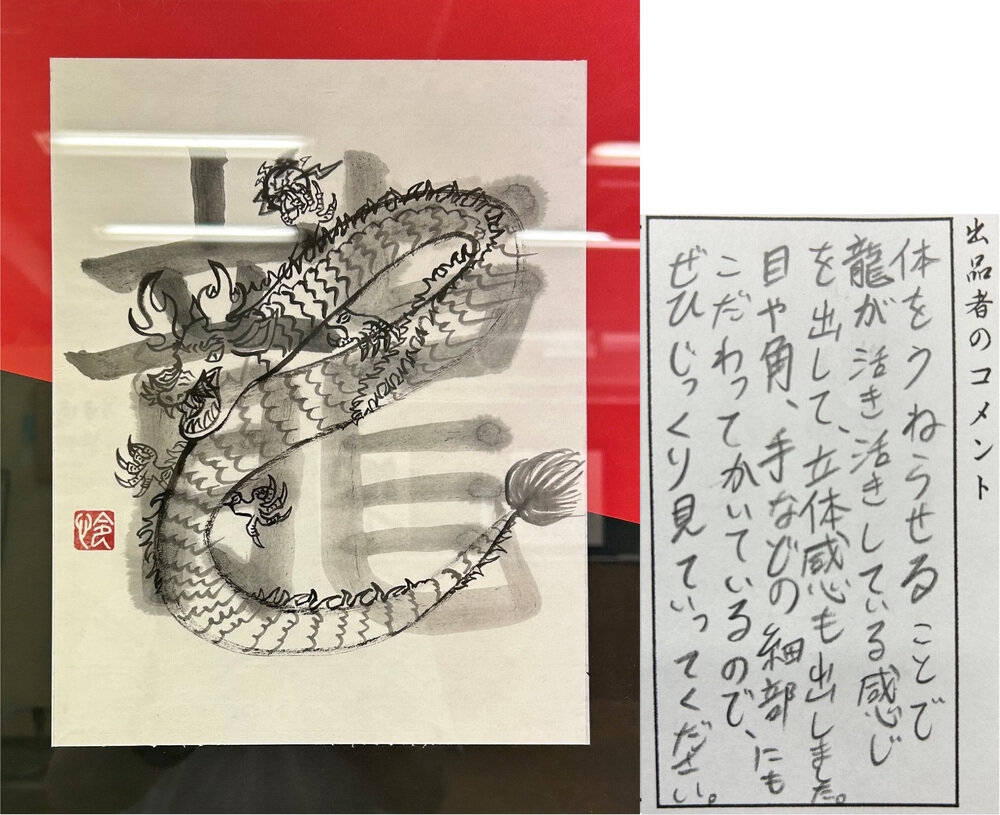 龍
怜
出品者のコメント
体をうねらせることで
龍が活き活きしている感じ
を出して、立体感も出しました。
目や角、手などの細部にも
こだわってかいているので、
ぜひじっくり見ていってください。